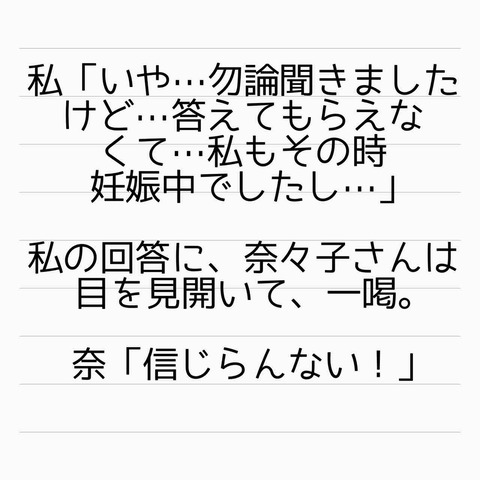 私「いや…勿論聞きました
けど…答えてもらえな
くて…私もその時
妊娠中でしたし…」
私の回答に、奈々子さんは
目を見開いて、一喝。
奈「信じらんない！」